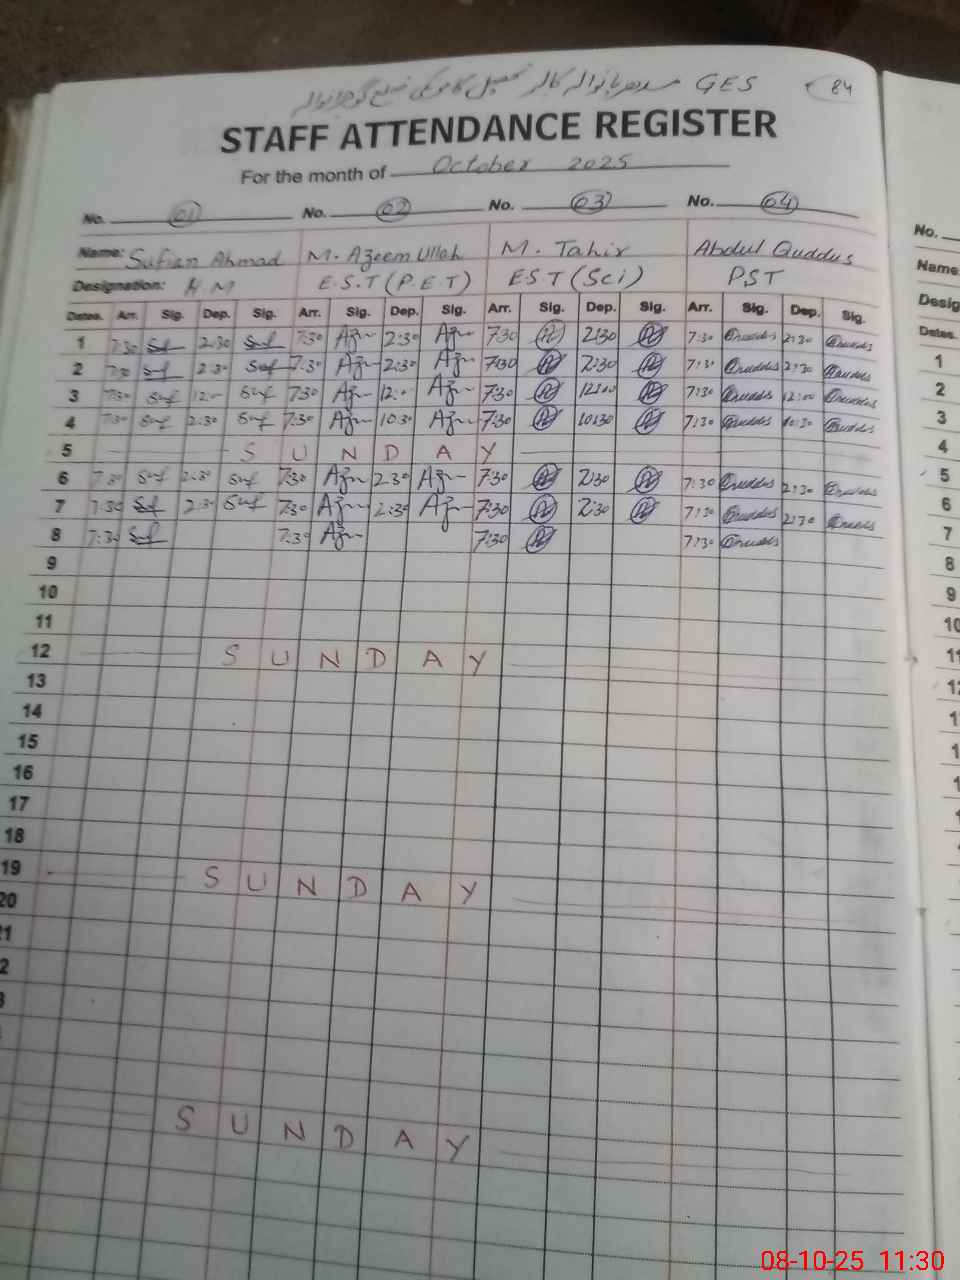 GES سدھریانوالہ کالر تحصیل کامونکی ضلع گوجرانوالہ
84
STAFF ATTENDANCE REGISTER
For the month of October 2025
No. 01 No. 02 No. 03 No. 04
Name: Sufian Ahmad M. Azeem Ullah M. Tahir Abdul Quddus
Designation: H M E.S.T (P.E.T) EST (Sci) PST
Dates. Arr. Sig. Dep. Sig. Arr. Sig. Dep. Sig. Arr. Sig. Dep. Sig. Arr. Sig. Dep. Sig.
1 7:30 Suf 2:30 Suf 7:30 Azm 2:30 Azm 7:30 2:30 7:30 Quddus 2:30 Quddus
2 7:30 Suf 2:30 Suf 7:30 Azm 2:30 Azm 7:30 2:30 7:30 Quddus 2:30 Quddus
3 7:30 Suf 12:00 Suf 7:30 Azm 12:00 Azm 7:30 12:00 7:30 Quddus 12:00 Quddus
4 7:30 Suf 2:30 Suf 7:30 Azm 10:30 Azm 7:30 10:30 7:30 Quddus 10:30 Quddus
5 S U N D A Y
6 7:30 Suf 2:30 Suf 7:30 Azm 2:30 Azm 7:30 2:30 7:30 Quddus 2:30 Quddus
7 7:30 Suf 2:30 Suf 7:30 Azm 2:30 Azm 7:30 2:30 7:30 Quddus 2:30 Quddus
8 7:30 Suf 7:30 Azm 7:30 7:30 Quddus
9
10
11
12 S U N D A Y
13
14
15
16
17
18
19 S U N D A Y
20
1
2
3
S U N D A Y
No.
Name
Desig
Dates.
1
2
3
4
5
6
7
8
9
10
11
12
08-10-25 11:30